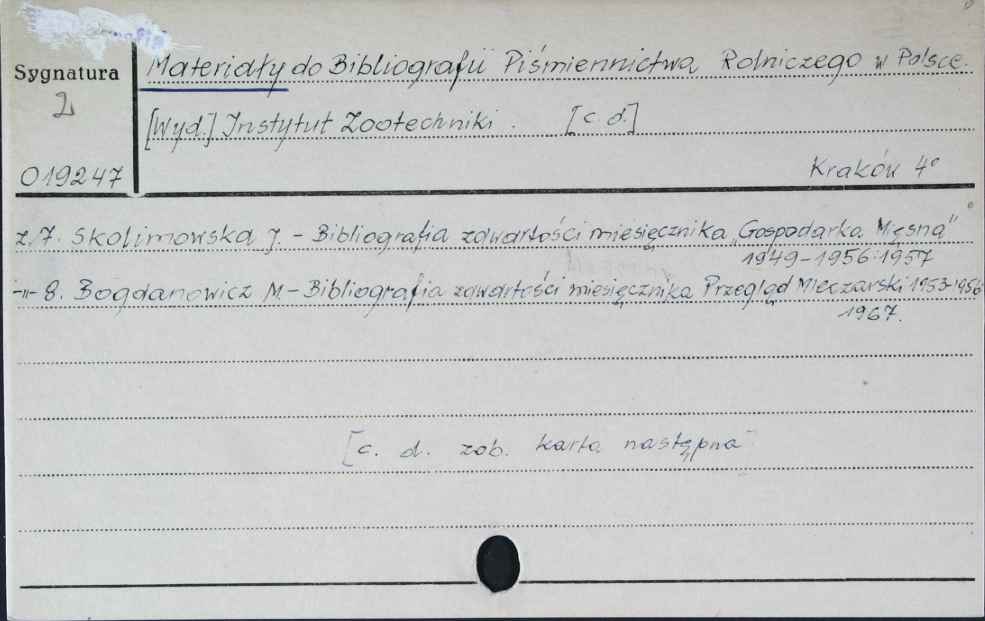 Sygnatura
2
019247
Materiały do Bibliografii Piśmiennictwa Rolniczego w Polsce.
[Wyd.] Instytut Zootechniki . [c. d.]
Kraków 4°
z. 7. Skolimowska J. – Bibliografia zawartości miesięcznika „Gospodarka Mięsna"
1949–1956. 1957
-„- 8. Bogdanowicz M – Bibliografia zawartości miesięcznika Przegląd Mleczarski 1953-1956
1967.
[c. d. zob. karta następna